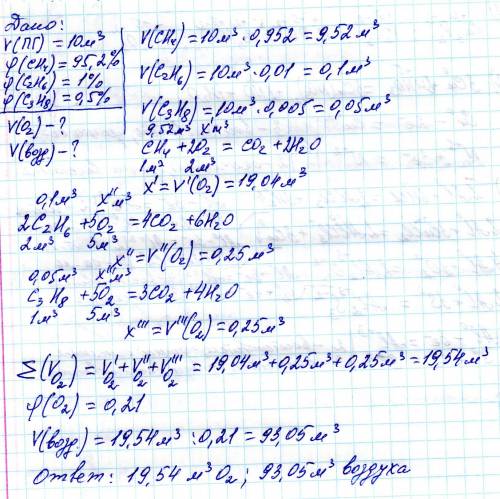 Дано:
V(ПГ) = 10м³
φ(CH₄) = 95,2%
φ(C₂H₆) = 1%
φ(C₃H₈) = 0,5%
V(O₂) - ?
V(возд) - ?
V(CH₄) = 10м³ · 0,952 = 9,52м³
V(C₂H₆) = 10м³ · 0,01 = 0,1м³
V(C₃H₈) = 10м³ · 0,005 = 0,05м³
9,52м³ x'м³
CH₄ + 2O₂ = CO₂ + 2H₂O
1м³ 2м³
x' = V'(O₂) = 19,04м³
0,1м³ x''м³
2C₂H₆ + 5O₂ = 4CO₂ + 6H₂O
2м³ 5м³
x'' = V''(O₂) = 0,25м³
0,05м³ x'''м³
C₃H₈ + 5O₂ = 3CO₂ + 4H₂O
1м³ 5м³
x''' = V'''(O₂) = 0,25м³
Σ(V O₂) = V' O₂ + V'' O₂ + V''' O₂ = 19,04м³ + 0,25м³ + 0,25м³ = 19,54м³
φ(O₂) = 0,21
V(возд) = 19,54м³ : 0,21 = 93,05м³
Ответ: 19,54 м³ O₂; 93,05м³ воздуха